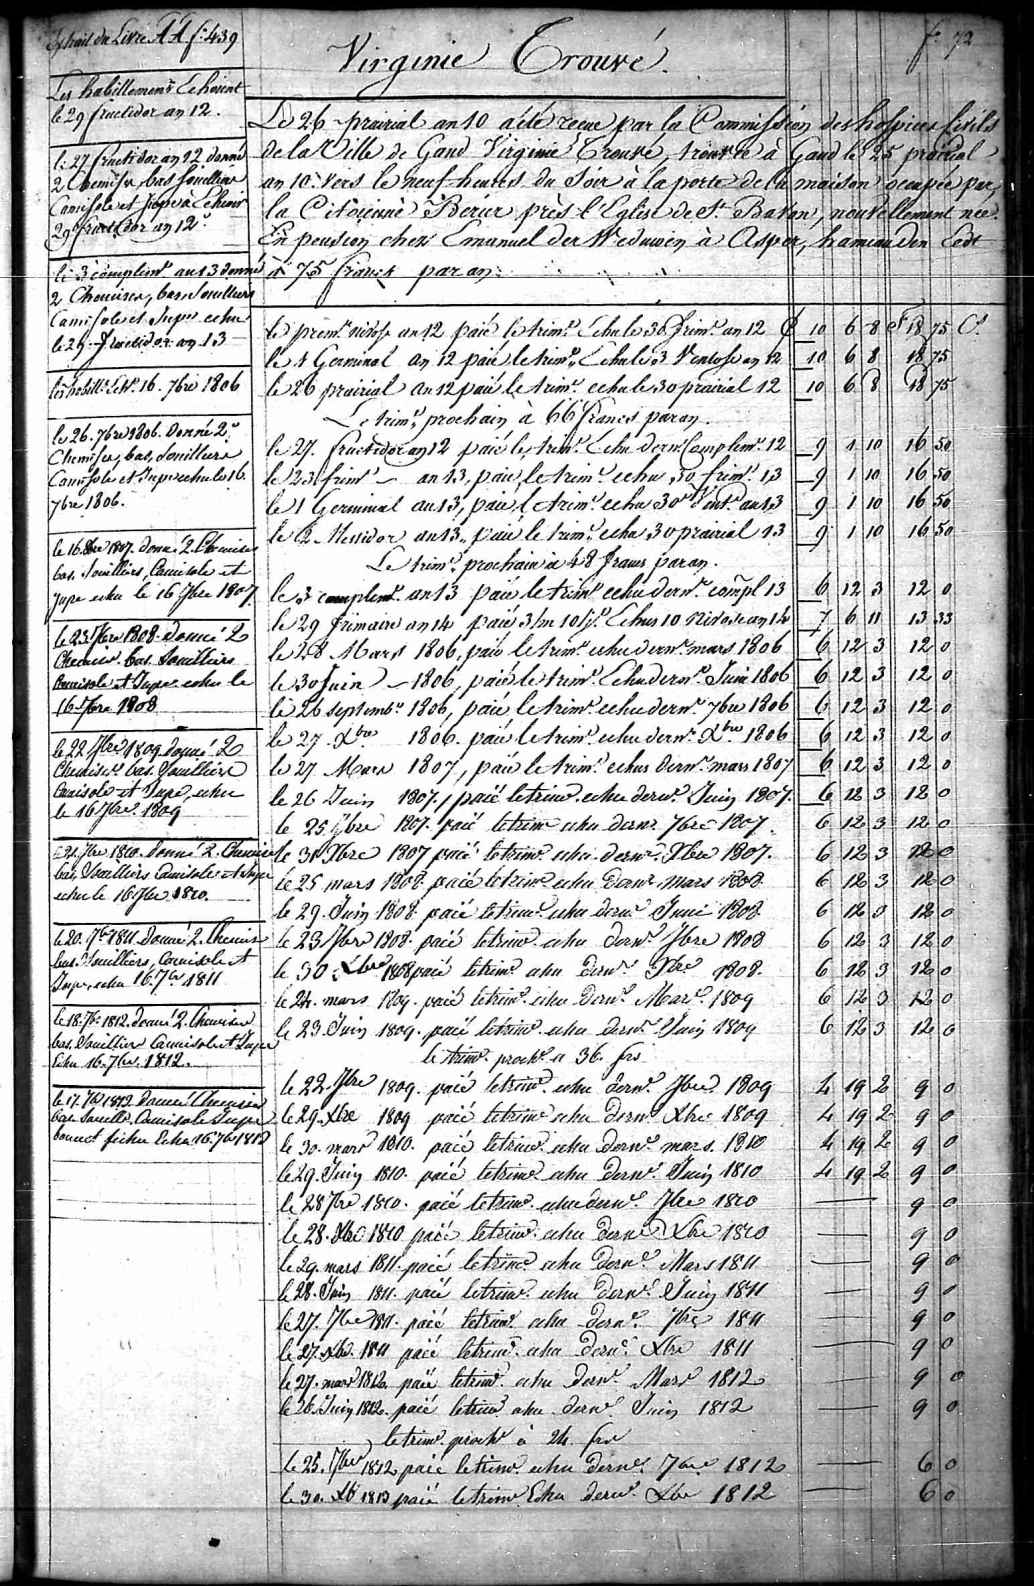 Extrait du Livre AA f. 439
f. 72
Virginie Trouvé.
Les habillemens Echoient
le 29 fructidor an 12.
le 27 fructidor an 12 donné
2 Chemises, bas souilliers
Camisole et Jupe à Echeoir
29 fructidor an 12.
le 3 complim. an 13 donné
2 Chemises, bas souilliers
Camisole et Jupe echu
le 29 fructidor an 13
les habill. 16. 7bre 1806
le 26. 7bre 1806. Donné 2
Chemises, bas, souilliers
Camisole et Jupe echu le 16.
7bre 1806.
le 16. 1807. donné 2 Chemises
bas. souilliers, Camisole et
Jupe echu le 16 7bre 1807.
le 23. 7bre 1808. donné 2
Chemises. bas. souilliers
Camisole et Jupe echu le
16 7bre 1808
le 22 7bre 1809 donné 2
Chemises. bas. souilliers
Camisole et Jupe, echu
le 16 7bre. 1809
7bre 1810. donné 2. Chemises
bas, souilliers Camisole et Jupe
echu le 16 7bre 1810.
le 20. 7bre 1811. Donné 2. Chemises
bas. souilliers, Camisole et
Jupe, echu 16. 7bre 1811
le 18. 7bre 1812. donné 2. Chemises
bas. souillier Camisole et Jupe
Echu 16. 7bre. 1812.
le 17. 7bre donné Chemises
bas souilli. Camisole Jupe
bonnet fichu Echu 16. 7bre
Le 26 prairial an 10 a été reçue par la Commission des hospices Civils
de la Ville de Gand Virginie Trouvé, trouvée à Gand le 25 prairial
an 10. Vers le neuf heures du Soir à la porte de la maison occupée par,
la Citoienne près l'Eglise de St. Bavon, nouvellement née.
En pension chez Emanuel der Weduwen à Asper, hameau den
à 75 francs par an.
le prem. nivose an 12 paié le trim. Echu le 30 frim. an 12 10 6 8 18 75 Cs
le 1 Germinal an 12 paié le trim. Echu le 3 Ventose an 12 10 6 8 18 75
le 26 prairial an 12 paié le trim. echu le 30 prairial 12 10 6 8 18 75
Le trim. prochain à 66 francs par an.
le 27. fructidor an 12 paié le trim. Echu dern. Complim. 12 9 1 10 16 50
le 23 frim. - an 13, paié le trim. echu 30 frim. 13 9 1 10 16 50
le 1 Germinal an 13, paié le trim. echu 30 Vent. an 13 9 1 10 16 50
le 2 Messidor an 13, paié le trim. echu 30 prairial 13 9 1 10 16 50
Le trim. prochain à 48 francs par an.
le 3 complem. an 13 paié le trim. echu dern. compl 13 6 12 3 12 0
le 29 frimaire an 14 paié 3/m 10 Echus 10 Nivose an 14 7 6 11 13 33
le 28 Mars 1806, paié le trim. echu dern. mars 1806 6 12 3 12 0
le 30 Juin - 1806, paié le trim. Echu dern. Juin 1806 6 12 3 12 0
le 26 septemb. 1806, paié le trim. echu dern. 7bre 1806 6 12 3 12 0
le 27. Xbre 1806. paié le trim. echu dern. Xbre 1806 6 12 3 12 0
le 27 Mars 1807, paié le trim. echus dern. mars 1807 6 12 3 12 0
le 26 Juin 1807, paié le trim. echu dern. Juin 1807. 6 12 3 12 0
le 25 7bre 1807. paié le trim echu dern. 7bre 1807. 6 12 3 12 0
le 31 Xbre 1807 paié le trim. echu dern. Xbre 1807. 6 12 3 12 0
le 25 mars 1808. paié le trim. echu dern. mars 1808 6 12 3 12 0
le 29. Juin 1808. paié le trim. echu dern. Juin 1808 6 12 3 12 0
le 23 7bre 1808. paié le trim. echu dern. 7bre 1808 6 12 3 12 0
le 30 Xbre 1808 paié le trim. echu dern. Xbre 1808. 6 12 3 12 0
le 24. mars 1809. paié le trim. echu dern. Mars. 1809 6 12 3 12 0
le 23. Juin 1809. paié le trim. echu dern. Juin 1809 6 12 3 12 0
le trim. proch. a 36. frs
le 22. 7bre 1809. paié le trim. echu dern. 7bre 1809 4 19 2 9 0
le 29. Xbre 1809 paié le trim. echu dern. Xbre 1809 4 19 2 9 0
le 30. mars 1810. paié le trim. echu dern. mars. 1810 4 19 2 9 0
le 29. Juin 1810. paié le trim. echu dern. Juin 1810 4 19 2 9 0
le 28 7bre 1810. paié le trim. echu dern. 7bre 1810 9 0
le 28. Xbre 1810 paié le trim. echu dern. Xbre 1810 9 0
le 29. mars 1811. paié le trim. echu dern. Mars 1811 9 0
le 28. Juin 1811. paié le trim. echu dern. Juin 1811 9 0
le 27. 7bre 1811. paié le trim. echu dern. 7bre 1811 9 0
le 27. Xbre. 1811 paié le trim. echu dern. Xbre 1811 9 0
le 27. mars 1812. paié le trim. echu dern. Mars 1812 9 0
le 26. Juin 1812. paié le trim. echu dern. Juin 1812 9 0
le trim. proch. à 24. frs
le 25. 7bre 1812 paié le trim. echu dern. 7bre 1812 6 0
le 30. Xb paié le trim. Echu dern. Xbre 1812 6 0